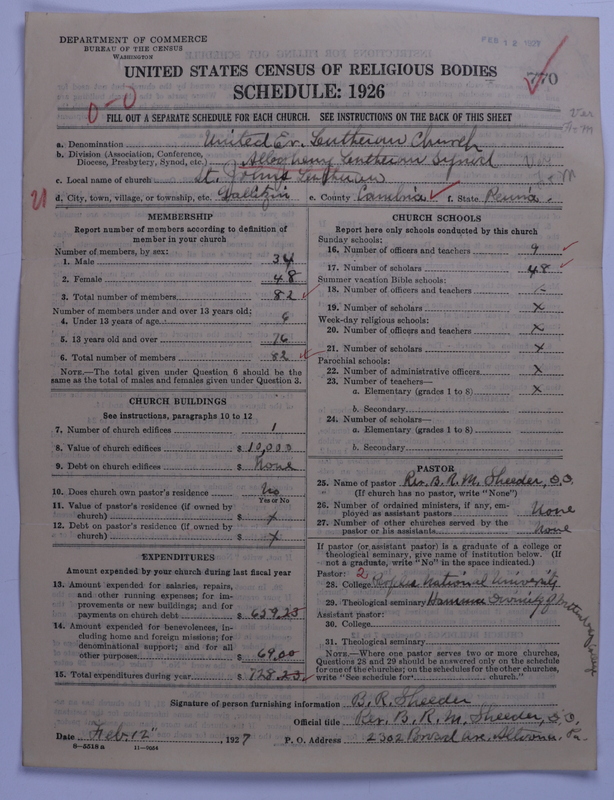 DEPARTMENT OF COMMERCE
BUREAU OF THE CENSUS
WASHINGTON
FEB 12 1927
UNITED STATES CENSUS OF RELIGIOUS BODIES
SCHEDULE: 1926
770
0-0
FILL OUT A SEPARATE SCHEDULE FOR EACH CHURCH. SEE INSTRUCTIONS ON THE BACK OF THIS SHEET
a. Denomination United Ev. Lutheran Church
b. Division (Association, Conference, Diocese, Presbytery, Synod, etc.) Allegheny Lutheran Synod
c. Local name of church St. Johns Lutheran
d. City, town, village, or township, etc. Gallitzin e. County Cambria f. State Penna.
MEMBERSHIP
Report number of members according to definition of
member in your church
Number of members, by sex:
1. Male 34
2. Female 48
3. Total number of members 82
Number of members under and over 13 years old:
4. Under 13 years of age 6
5. 13 years old and over 76
6. Total number of members 82
NOTE.—The total given under Question 6 should be
same as the total of males and females given under Question 3.
CHURCH BUILDINGS
See instructions, paragraphs 10 to 12
7. Number of church edifices 1
8. Value of church edifices $ 10,000
9. Debt on church edifices $ None
10. Does church own pastor's residence No
Yes or No
11. Value of pastor's residence (if owned by
church) $ x
12. Debt on pastor's residence (if owned by
church) $ x
EXPENDITURES
Amount expended by your church during last fiscal year
13. Amount expended for salaries, repairs,
and other running expenses; for im-
provements or new buildings; and for
payments on church debt $ 659,25
14. Amount expended for benevolences, in-
cluding home and foreign missions; for
denominational support; and for all
other purposes $ 69,00
15. Total expenditures during year $ 728,25
CHURCH SCHOOLS
Report here only schools conducted by this church
Sunday schools:
16. Number of officers and teachers 9
17. Number of scholars 48
Summer vacation Bible schools:
18. Number of officers and teachers
19. Number of scholars x
Week-day religious schools:
20. Number of officers and teachers x
21. Number of scholars x
Parochial schools:
22. Number of administrative officers x
23. Number of teachers—
a. Elementary (grades 1 to 8) x
b. Secondary
24. Number of scholars—
a. Elementary (grades 1 to 8)
b. Secondary
PASTOR
25. Name of pastor Rev. B. R. M. Sheeder, D.D.
(If church has no pastor, write "None")
26. Number of ordained ministers, if any, em-
ployed as assistant pastors None
27. Number of other churches served by the
pastor or his assistants None
If pastor (or assistant pastor) is a graduate of a college or
theological seminary, give name of institution below. (If
not a graduate, write "No" in the space indicated.)
Pastor: 2
28. College Peoples National University
29. Theological seminary Hamma Divinity
Assistant pastor:
30. College
31. Theological seminary
NOTE.—Where one pastor serves two or more churches,
Questions 28 and 29 should be answered only on the schedule
for one of the churches; on the schedules for the other churches,
write "See schedule for church."
Signature of person furnishing information B. R. Sheeder
Official title Rev. B. R. M. Sheeder, D.D.
Date Feb. 12", 1927 P. O. Address 2302 Broad Ave, Altoona, Pa.
8-5518 a 11-9054